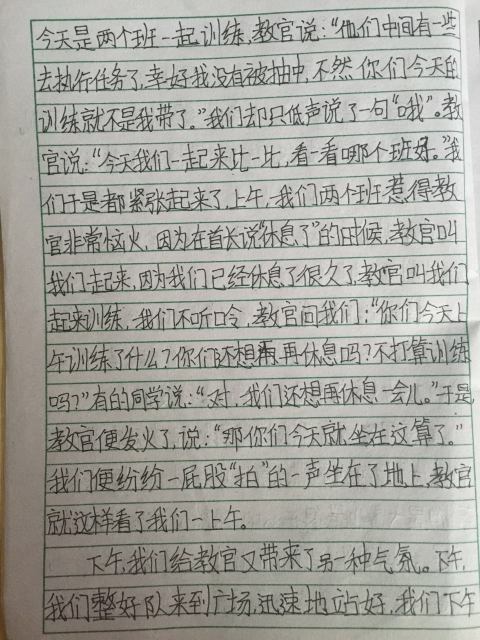 今天是两个班一起训练,教官说:“他们中间有一些
去执行任务了,幸好我没有被抽中,不然你们今天的
训练就不是我带了。”我们却只低声说了一句“哦”。教
官说:“今天我们一起来比一比,看一看哪个班好。”我
们于是都紧张起来了,上午,我们两个班惹得教
官非常恼火,因为在首长说“休息了”的时候,教官叫
我们走起来,因为我们已经休息了很久了,教官叫我们
起来训练,我们不听口令,教官问我们:“你们今天上
午训练了什么?你们还想再休息吗?不打算训练
吗?”有的同学说:“对,我们还想再休息一会儿。”于是,
教官便发火了,说:“那你们今天就坐在这算了。”
我们便纷纷一屁股“拍”的一声坐在了地上,教官
就这样看了我们一上午。
下午,我们给教官又带来了另一种气氛。下午,
我们整好队来到广场,迅速地站好,我们下午